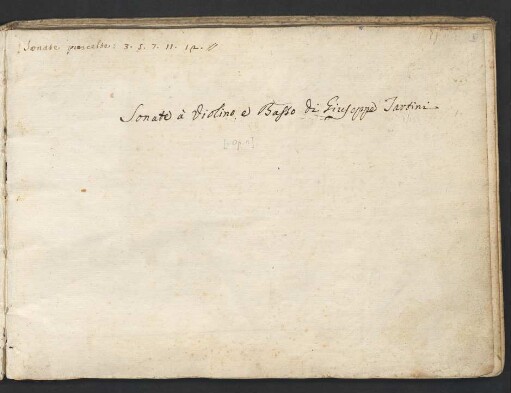 Sonate prescelte: 3. 5. 7. 11. 12.
Sonate à Violino, e Basso di Giuseppe Tartini.